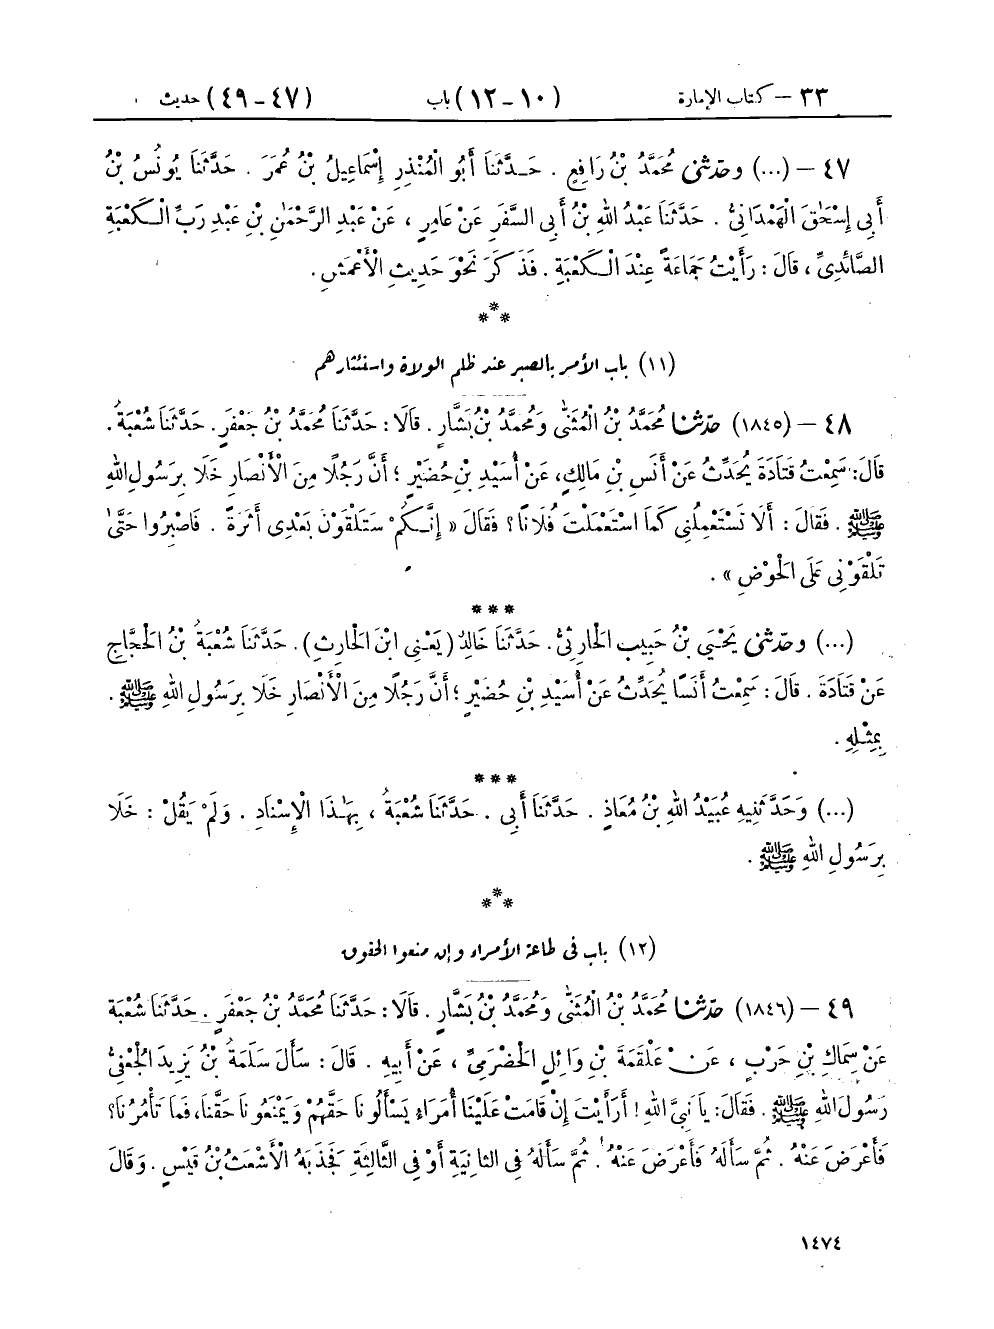 ٣٣ – كتاب الإمارة (١٠-١٢) باب (٤٧-٤٩) حديث
٤٧ – (...) وحدثنى مُحَمَّدُ بْنُ رَافِعٍ . حَدَّثَنَا أَبُو الْمُنْذِرِ إِسْمَاعِيلُ بْنُ عُمَرَ . حَدَّثَنَا يُونُسُ بْنُ
أَبِى إِسْحَاقَ الْهَمْدَانِىُّ . حَدَّثَنَا عَبْدُ اللهِ بْنُ أَبِى السَّفَرِ عَنْ عَامِرٍ ، عَنْ عَبْدِ الرَّحْمَٰنِ بْنِ عَبْدِ رَبِّ الْكَعْبَةِ
الصَّائِدِىِّ ، قَالَ : رَأَيْتُ جَمَاعَةً عِنْدَ الْكَعْبَةِ . فَذَكَرَ نَحْوَ حَدِيثِ الْأَعْمَشِ .
***
(١١) باب الأمر بالصبر عند ظلم الولاة واستئثارهم
٤٨ – (١٨٤٥) حدّثنا مُحَمَّدُ بْنُ الْمُثَنَّى وَمُحَمَّدُ بْنُ بَشَّارٍ . قَالَا : حَدَّثَنَا مُحَمَّدُ بْنُ جَعْفَرٍ . حَدَّثَنَا شُعْبَةُ .
قَالَ : سَمِعْتُ قَتَادَةَ يُحَدِّثُ عَنْ أَنَسِ بْنِ مَالِكٍ ، عَنْ أُسَيْدِ بْنِ حُضَيْرٍ ؛ أَنَّ رَجُلًا مِنَ الْأَنْصَارِ خَلَا بِرَسُولِ اللهِ
ﷺ . فَقَالَ : أَلَا تَسْتَعْمِلُنِى كَمَا اسْتَعْمَلْتَ فُلَانًا ؟ فَقَالَ « إِنَّكُمْ سَتَلْقَوْنَ بَعْدِى أَثَرَةً . فَاصْبِرُوا حَتَّىٰ
تَلْقَوْنِى عَلَى الْحَوْضِ » .
***
(...) وحدّثنى يَحْيَىٰ بْنُ حَبِيبٍ الْحَارِثِىُّ . حَدَّثَنَا خَالِدٌ (يَعْنِى ابْنَ الْحَارِثِ) . حَدَّثَنَا شُعْبَةُ بْنُ الْحَجَّاجِ
عَنْ قَتَادَةَ . قَالَ : سَمِعْتُ أَنَسًا يُحَدِّثُ عَنْ أُسَيْدِ بْنِ حُضَيْرٍ ؛ أَنَّ رَجُلًا مِنَ الْأَنْصَارِ خَلَا بِرَسُولِ اللهِ ﷺ .
بِمِثْلِهِ .
***
(...) وَحَدَّثَنِيهِ عُبَيْدُ اللهِ بْنُ مُعَاذٍ . حَدَّثَنَا أَبِى . حَدَّثَنَا شُعْبَةُ ، بِهَٰذَا الْإِسْنَادِ . وَلَمْ يَقُلْ : خَلَا
بِرَسُولِ اللهِ ﷺ .
***
(١٢) باب فى طاعة الأمراء وإن منعوا الحقوق
٤٩ – (١٨٤٦) حدّثنا مُحَمَّدُ بْنُ الْمُثَنَّىٰ وَمُحَمَّدُ بْنُ بَشَّارٍ . قَالَا : حَدَّثَنَا مُحَمَّدُ بْنُ جَعْفَرٍ . حَدَّثَنَا شُعْبَةُ
عَنْ سِمَاكِ بْنِ حَرْبٍ ، عَنْ عَلْقَمَةَ بْنِ وَائِلٍ الْحَضْرَمِىِّ ، عَنْ أَبِيهِ . قَالَ : سَأَلَ سَلَمَةُ بْنُ يَزِيدَ الْجُعْفِىُّ
رَسُولَ اللهِ ﷺ . فَقَالَ : يَا نَبِىَّ اللهِ ! أَرَأَيْتَ إِنْ قَامَتْ عَلَيْنَا أُمَرَاءُ يَسْأَلُونَا حَقَّهُمْ وَيَمْنَعُونَا حَقَّنَا ، فَمَا تَأْمُرُنَا ؟
فَأَعْرَضَ عَنْهُ . ثُمَّ سَأَلَهُ فَأَعْرَضَ عَنْهُ . ثُمَّ سَأَلَهُ فِى الثَّانِيَةِ أَوْ فِى الثَّالِثَةِ فَجَذَبَهُ الْأَشْعَثُ بْنُ قَيْسٍ . وَقَالَ
١٤٧٤